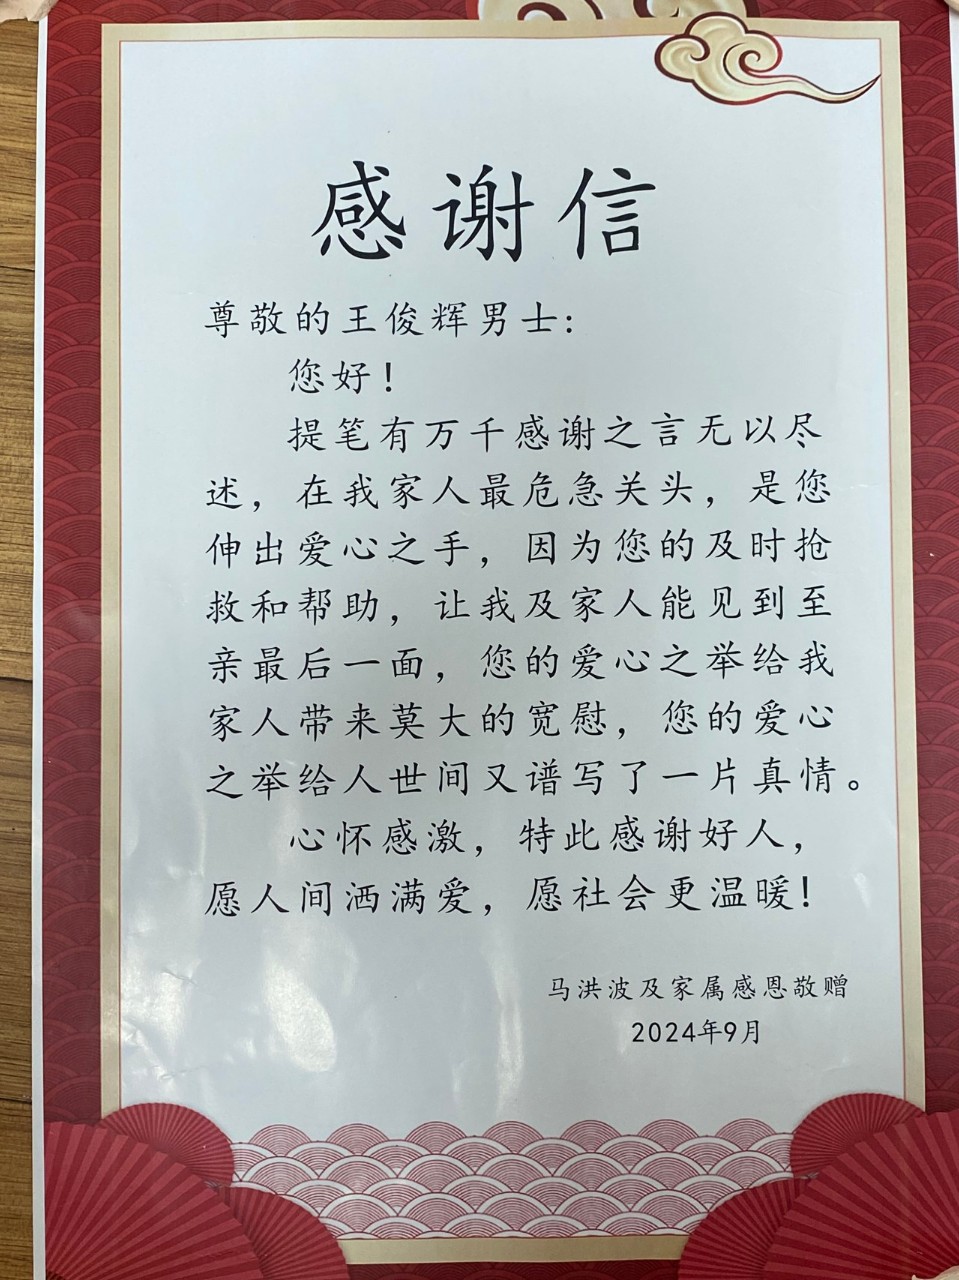 感谢信
尊敬的王俊辉男士:
您好!
提笔有万千感谢之言无以尽
述，在我家人最危急关头，是您
伸出爱心之手，因为您的及时抢
救和帮助，让我及家人能见到至
亲最后一面，您的爱心之举给我
家人带来莫大的宽慰，您的爱心
之举给人世间又谱写了一片真情。
心怀感激，特此感谢好人，
愿人间洒满爱，愿社会更温暖!
马洪波及家属感恩敬赠
2024年9月